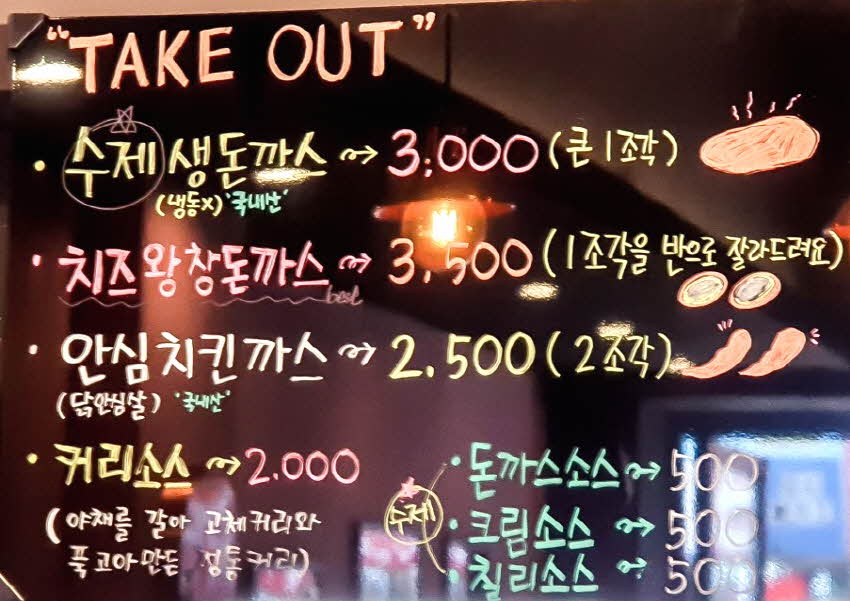 "TAKE OUT"
· 수제생돈까스 → 3,000 (큰 1조각)
(냉동x) '국내산'
· 치즈왕창돈까스 → 3,500 (1조각을 반으로 잘라드려요)
best
· 안심치킨까스 → 2.500 (2조각)
(닭안심살) '국내산'
· 커리소스 → 2.000
(야채를 갈아 고체커리와
푹고아만든 정통커리)
수제
· 돈까스소스 → 500
· 크림소스 → 500
· 칠리소스 → 500